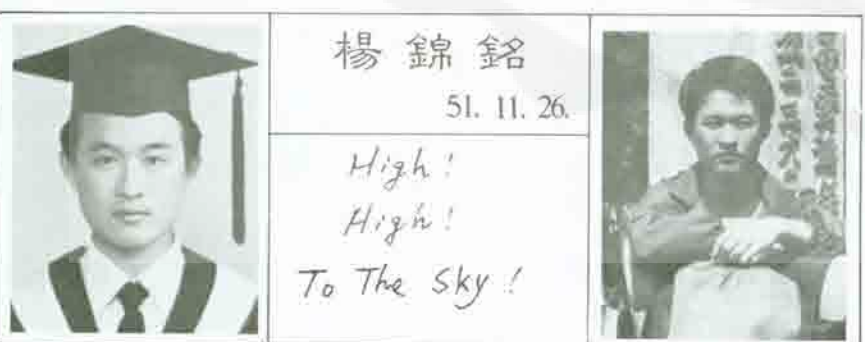 楊錦銘
51. 11. 26.
High!
High!
To The Sky!